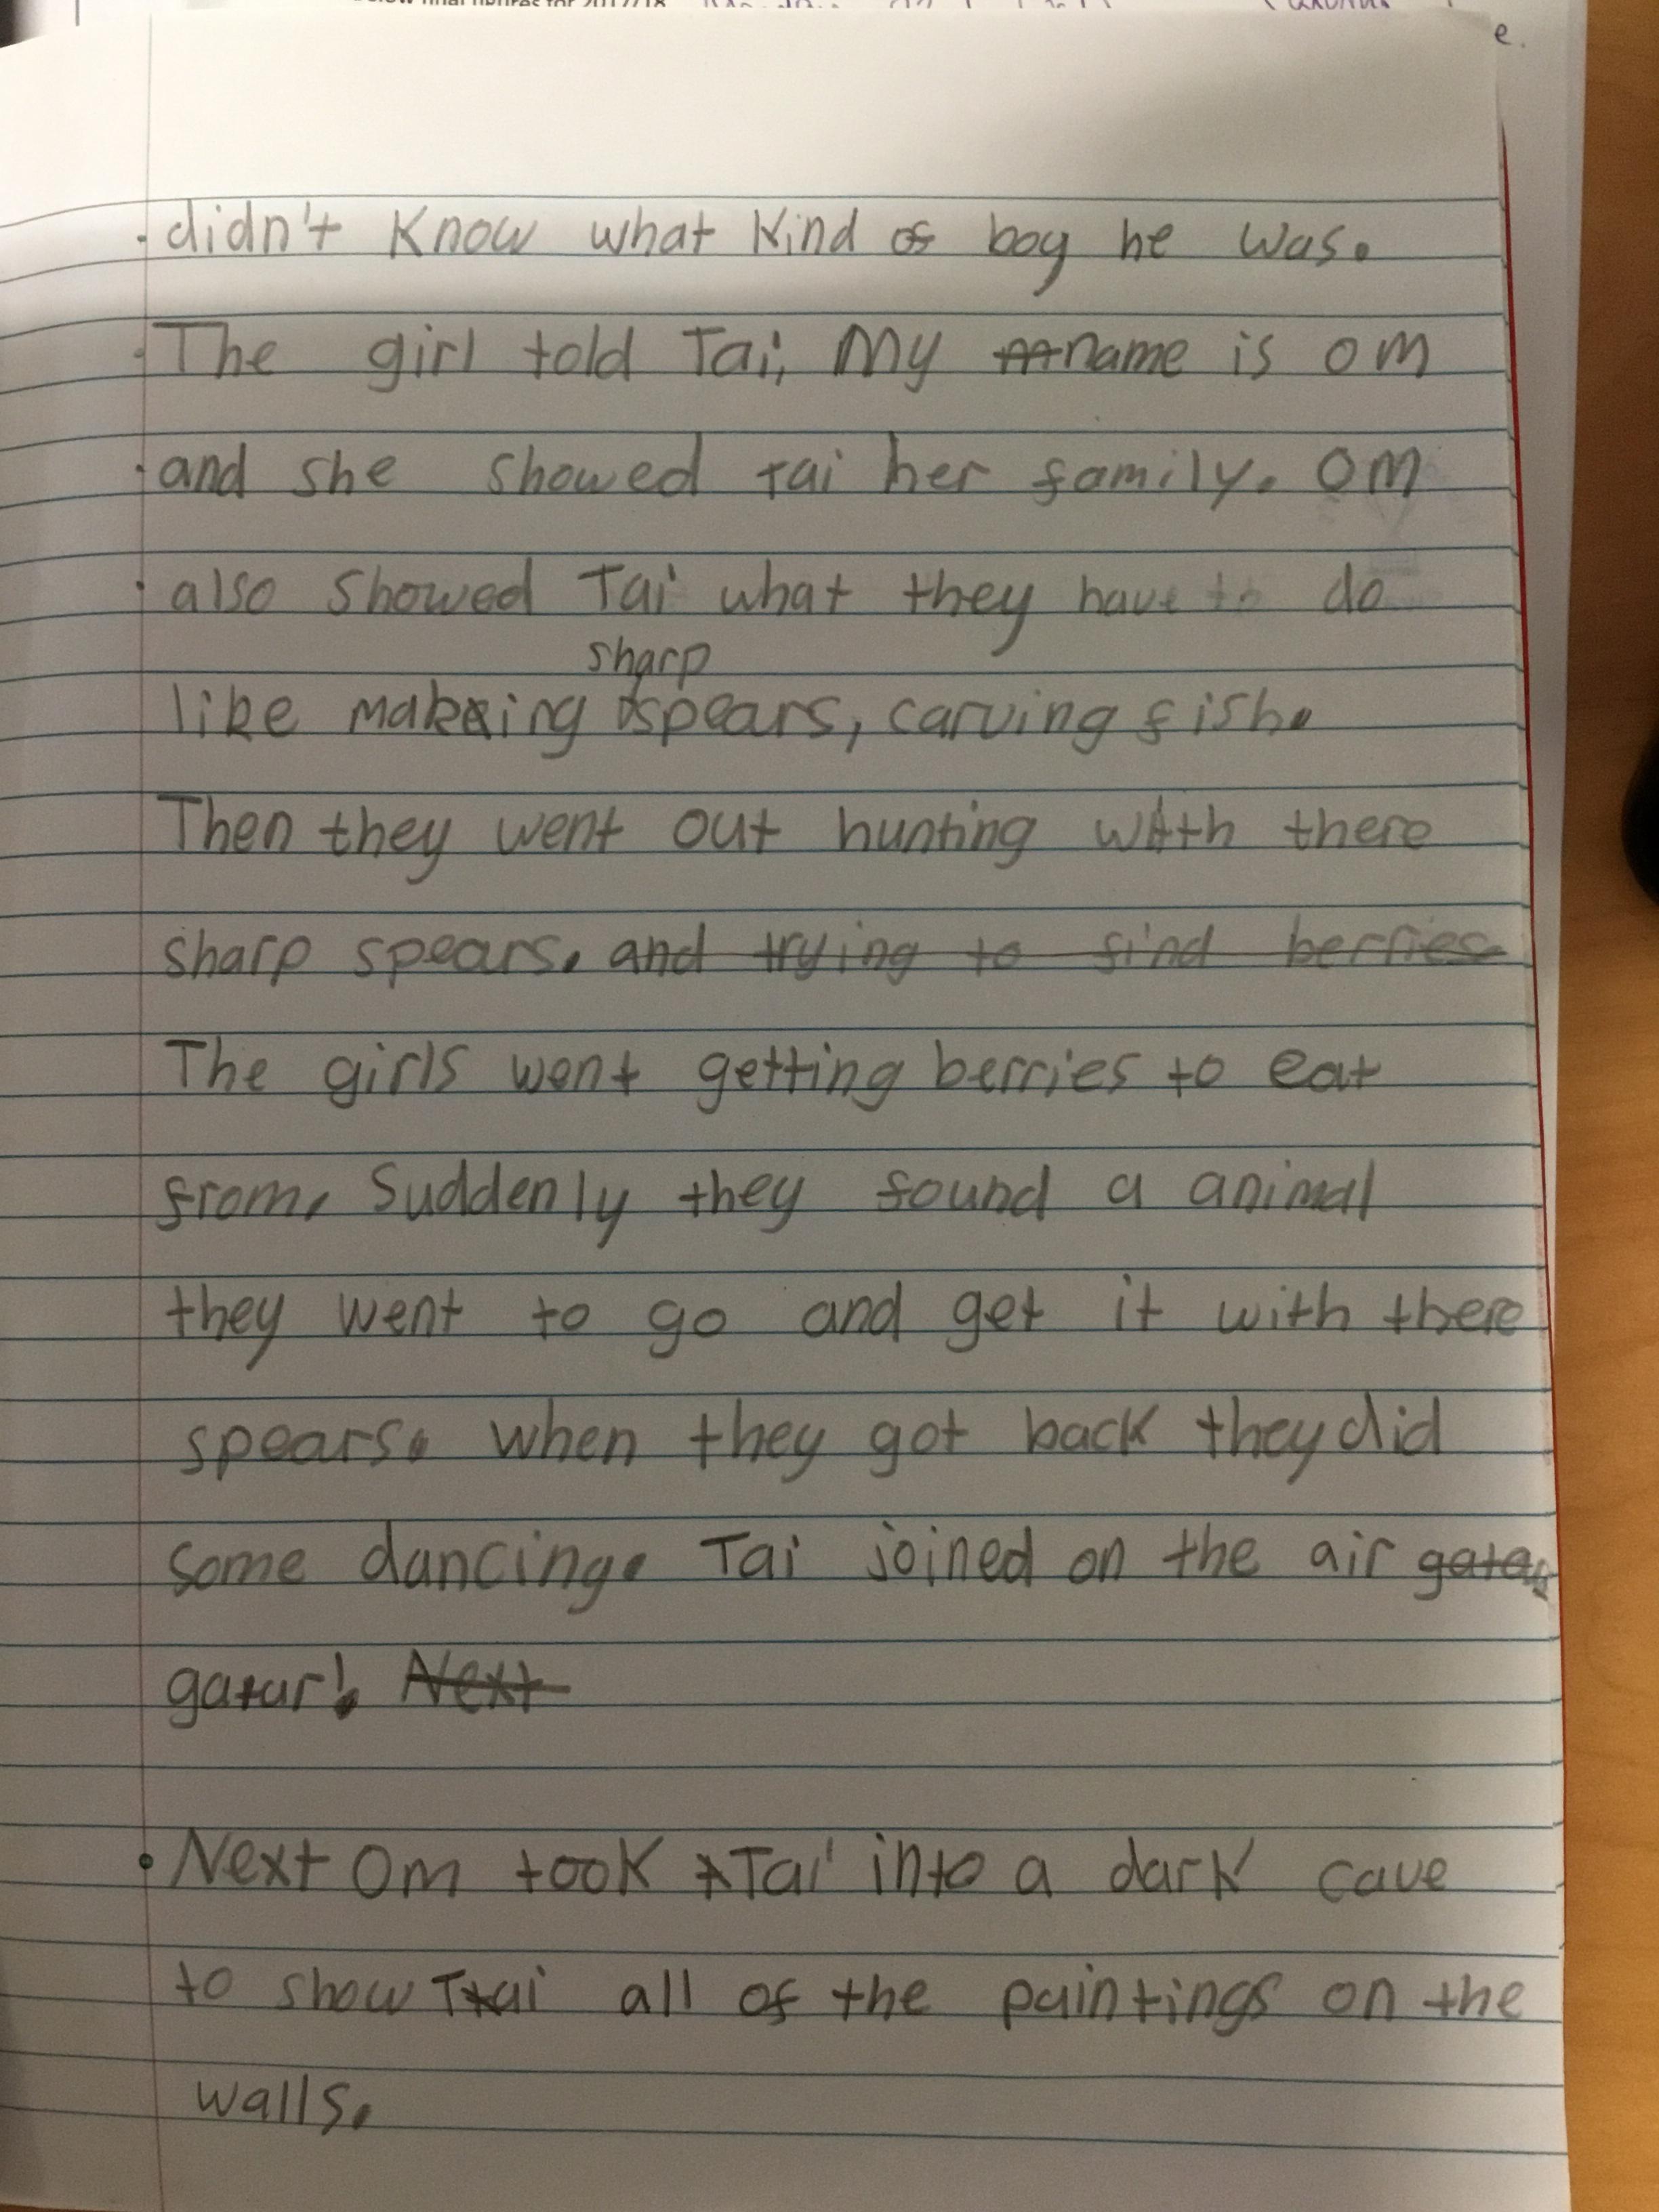 didn't know what kind of boy he was.
The girl told Tai, My name is om
and she showed tai her family. Om
also showed Tai what they have to do
sharp
like making spears, carving fish.
Then they went out hunting with there
sharp spears. and trying to find berries
The girls went getting berries to eat
from. Suddenly they found a animal
they went to go and get it with there
spears. when they got back they did
some dancing. Tai joined on the air
gatar! Next
Next Om took Tai into a dark cave
to show Tai all of the paintings on the
walls.